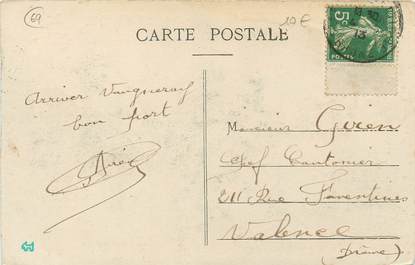 69
10€
CARTE POSTALE
5c
POSTES
13
Arriver Vaugneray
bon port
Monsieur
Chef Cantonier
Rue Faventines
Valence
(Drôme)